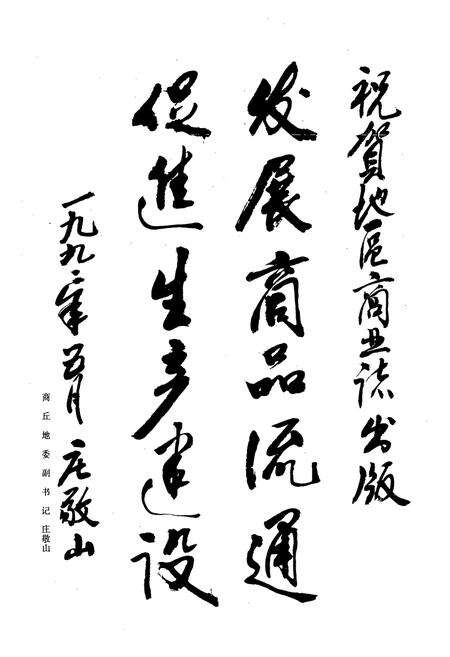 祝賀地區商业誌出版
发展商品流通
促進生产建设
一九九二年五月 庄敬山
商丘地委副书记 庄敬山